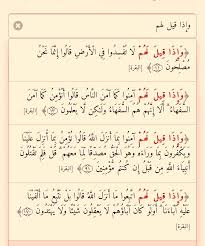 وإذا قيل لهم
﴿وَإِذَا قِيلَ لَهُمْ لَا تُفْسِدُوا فِي الْأَرْضِ قَالُوا إِنَّمَا نَحْنُ
مُصْلِحُونَ ﴿١١﴾﴾ [البقرة]
﴿وَإِذَا قِيلَ لَهُمْ آمِنُوا كَمَا آمَنَ النَّاسُ قَالُوا أَنُؤْمِنُ كَمَا آمَنَ
السُّفَهَاءُ أَلَا إِنَّهُمْ هُمُ السُّفَهَاءُ وَلَكِنْ لَا يَعْلَمُونَ ﴿١٣﴾﴾ [البقرة]
﴿وَإِذَا قِيلَ لَهُمْ آمِنُوا بِمَا أَنْزَلَ اللَّهُ قَالُوا نُؤْمِنُ بِمَا أُنْزِلَ عَلَيْنَا
وَيَكْفُرُونَ بِمَا وَرَاءَهُ وَهُوَ الْحَقُّ مُصَدِّقًا لِمَا مَعَهُمْ قُلْ فَلِمَ تَقْتُلُونَ
أَنْبِيَاءَ اللَّهِ مِنْ قَبْلُ إِنْ كُنْتُمْ مُؤْمِنِينَ ﴿٩١﴾﴾ [البقرة]
﴿وَإِذَا قِيلَ لَهُمُ اتَّبِعُوا مَا أَنْزَلَ اللَّهُ قَالُوا بَلْ نَتَّبِعُ مَا أَلْفَيْنَا
عَلَيْهِ آبَاءَنَا أَوَلَوْ كَانَ آبَاؤُهُمْ لَا يَعْقِلُونَ شَيْئًا وَلَا يَهْتَدُونَ ﴿١٧٠﴾﴾
[البقرة]